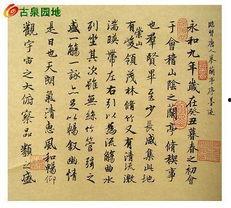 古泉园地
永和九年歲在癸丑暮春之初會
于會稽山陰之蘭亭脩稧事
也羣賢畢至少長咸集此地
有崇領茂林脩竹又有清流激
湍暎帶左右引以為流觴曲水
列坐其次雖無絲竹管弦之
盛一觴一詠亦足以暢敘幽情
是日也天朗氣清惠風和暢仰
觀宇宙之大俯察品類之盛